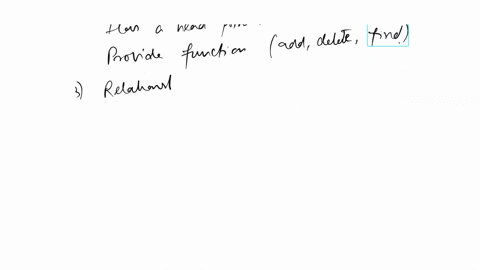 Has a head
Provide function (add, delete, find)
3) Relationsh